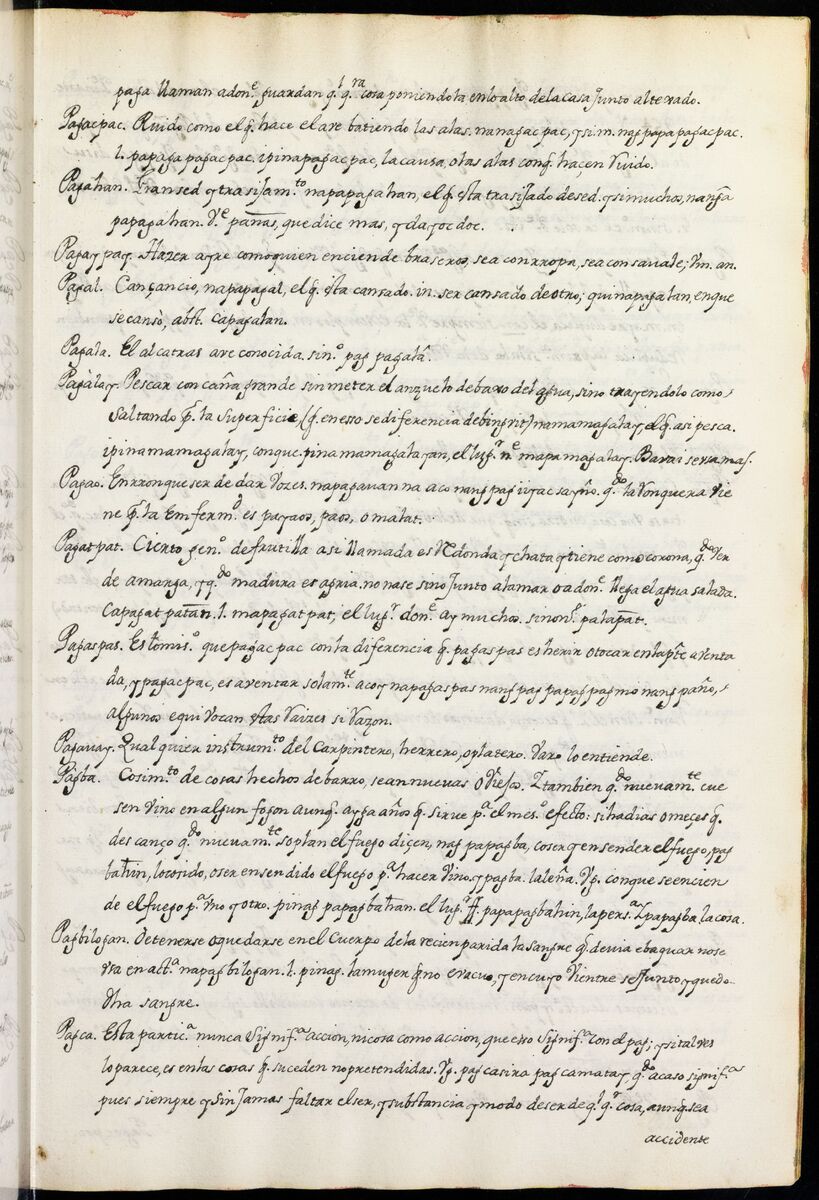 paga llaman adonᵉ guardan q.l q.ra cosa poniendola enlo alto dela casa Junto alterado.
Pagacpac. Ruido como el q. hace el are batiendo las alas. nanagac pac, y si.m. nag papa pagacpac.
l. papaga pagacpac. ipinapagac pac, la causa, o las alas conq. haçen Ruido.
Pagahan. Gran sed y tra sijam.to napapagahan, el q. esta trasijado desed. y si muchos, nanga
papagahan. V.e pañas, que dice mas, y da y oc doc.
Pagaypay. Hazer ayre como quien enciende braseros, sea con rropa, sea con savate; Vm. an.
Pagal. Cançancio, napapagal, el q. esta cansado. in. ser cansado de otro; quinapagalan, enque
se cansò, abst. capagalan.
Pagala. El alcatras ave conocida. sin.o pag pagala.
Pagalay. Pescar con caña grande sin meter el anzuelo debaxo del agua, sino trayendolo como
saltando p.r la superficie, (q. en esso se diferencia de bingvit) namamagalay, el q. asi pesca.
ipinamamagalay, conque. pinamamagalayan, el lug.r n.e mapamagalay. Barai serra mas.
Pagao. Enrronqueser de dar Vozes. napagavan na aco nang pag iyac sa yño. q.do la Ronquera Vie
ne p.r la Emferm.d es payaos, paos, o malat.
Pagatpat. Cierto gen.o de frutilla asi llamada es Redonda y chata y tiene como corona, q.do Ver
de amarga, y q.do madura es agria. no nase sino Junto ala mar o a don.e llega el agua salada.
Capagat patan. l. mapagat pat, el lug.r don.e ay muchos. sinon.o palapat.
Pagaspas. Es lo mis.o que pagac pac con la diferencia q. pagas pas es herir o tocar en la p.te aventa
da, y pagac pac, es aventar solam.te aco y napagaspas nang pag papag pag mo nang paño,
algunos equi Vocan estas Raizes si Razon.
Pagavay. Qual quier instrum.to del Carpintero, herrero, o platero. Varo lo entiende.
Pagba. Cosim.to de cosas hechas de barro, sean nuevas o Viejas. Z tambien q.do nuevam.te cue
sen Vino en algun fogon aunq. ayga años q. sirve p.a el mes.o efecto: si ha dias o meçes q.
des canço q.do nuevam.te soplan el fuego diçen, nag papagba, coser y en sender el fuego, pag
bahin, lo cosido, o ser en sendido el fuego p.a hacer Vino. y pagba. la leña. Vg. conque se encien
de el fuego p.a Vno y otro. pinag papagbahan. el lug.r papapagbahin, la pers.a Z papagba la cosa.
Pagbilogan. Detenerse o quedarse en el Cuerpo dela recien parida la sangre q. devia ebaquar no se
Vsa en act.a napagbilogan. l. pinag. la muger q. no evacuo, y en cuyo Vientre se Junto y quedo
dha sangre.
Pagca. Esta partic.a nunca signif.a accion, ni cosa como accion, que esso signif.a con el pag; y si tal ves
lo parece, es en las cosas q. suceden no pretendidas. Vg. pag casira pag camatay, q.do acaso signif.as
pues siempre y sin Jamas faltar el ser, y substancia y modo de ser de q.l q.r cosa, aunq. sea
accidente